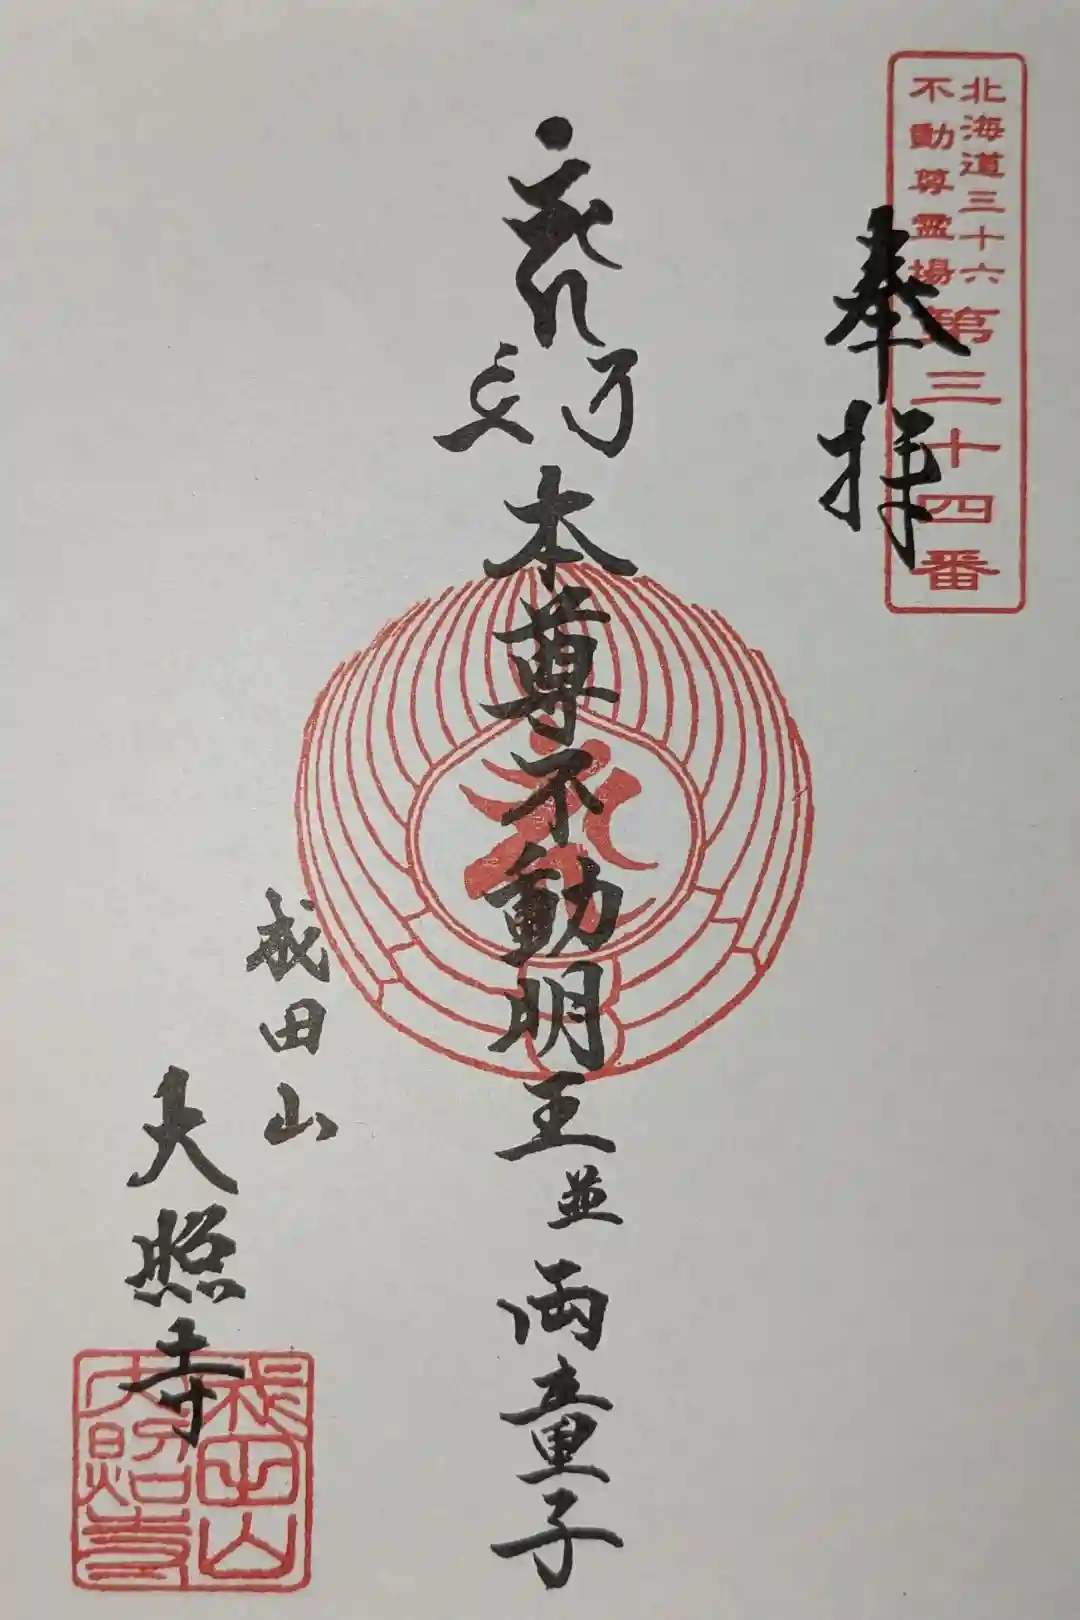 北海道三十六
不動尊霊場
第三十四番
奉拝
本尊不動明王並両童子
成田山
大照寺
成田山
大照寺